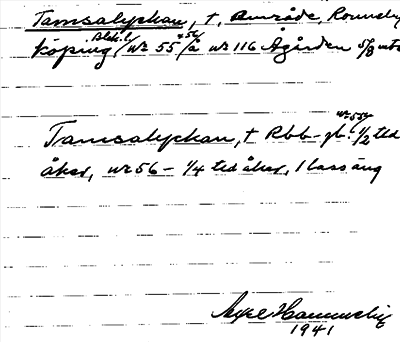 Tamsalyckan, †, område, Ronneby
köping (Blek. l.) nr 55 + 56 å nr 116 Ågården 5/8 mtl
Tamsalyckan, † Rbb-jb. nr 55: 1/2 tld
åker, nr 56 - 1/4 tld åker, 1 lass äng
Axel
1941